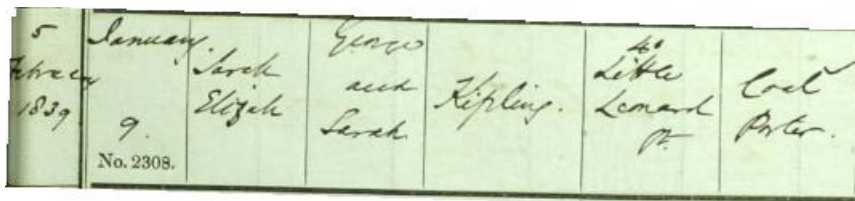 5
February
1839
January
9.
No. 2308.
Sarah
Elizah
George
and
Sarah
Kipling.
40
Little
Leonard
St.
Coal
Porter.